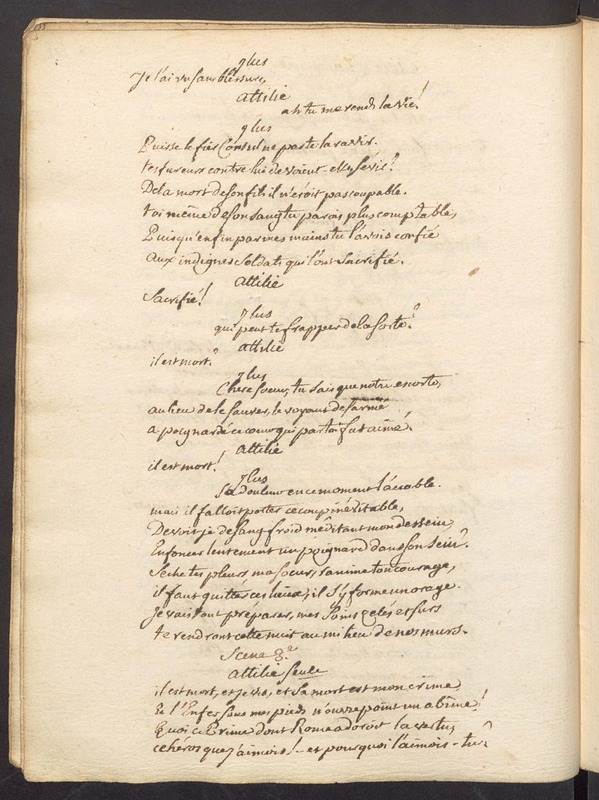 ylus
Je l'ai vu sans blessure,
attilie
ah tu me rends la vie!
ylus
Puisse le fier Consul ne pas te la ravir.
tes fureurs contre lui devoient - elles sevir?
De la mort de son fils il n'étoit pas coupable.
toi même de son sang tu parois plus comptable,
Puisqu'enfin par mes mains tu l'avois confié
aux indignes soldats qui l'ont sacrifié.
attilie
Sacrifié!
ylus
qui peut te frapper de la sorte?
attilie
il est mort?
ylus
Chere soeur, tu sais que notre escorte,
au lieu de le sauver, le voyant desarmé
a poignardé ce coeur qui par toi fut aimé.
attilie
il est mort!
ylus
Sa douleur en ce moment l'accable.
mais il falloit porter ce coup inévitable,
Devois-je de sang froid méditant mon dessein,
Enfoncer lentement un poignard dans son sein?
Seche tes pleurs, ma soeur, ranime ton courage,
il faut quitter ces lieux, il s'y forme un orage.
Je vais tout préparer, mes soins zelés et surs
te rendront cette nuit au milieu de nos murs.
Scena 3.e
attilie seule
il est mort, et je vis, et sa mort est mon crime
Et l'Enfer sous mes pieds n'ouvre point un abîme!
Quoi ce Prince dont Rome adoroit la vertu,
ce héros que j'aimois! - et pourquoi l'aimois - tu?